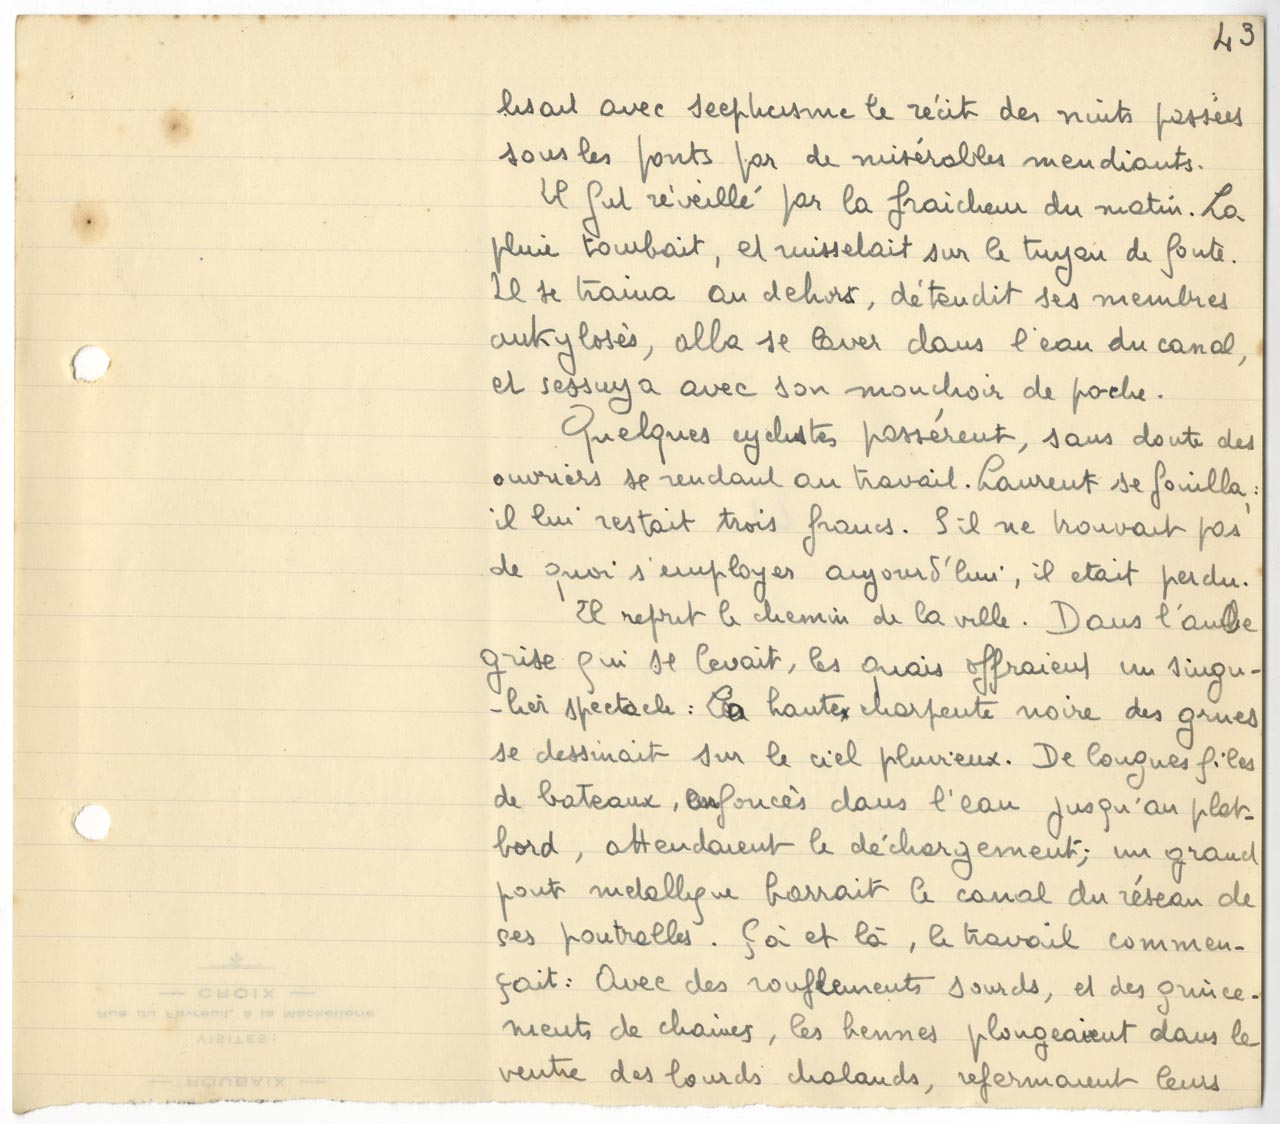 43
lisait avec scepticisme le récit des nuits passées
sous les ponts par de misérables mendiants.
Il fut réveillé par la fraicheur du matin. La
pluie tombait, et ruisselait sur le tuyau de fonte.
Il se traina au dehors, détendit ses membres
ankylosés, alla se laver dans l'eau du canal,
et s'essuya avec son mouchoir de poche.
Quelques cyclistes passérent, sans doute des
ouvriers se rendant au travail. Laurent se fouilla:
il lui restait trois francs. S'il ne trouvait pas
de quoi s'employer aujourd'hui, il etait perdu.
Il reprit le chemin de la ville. Dans l'aube
grise qui se levait, les quais offraient un singu-
-lier spectacle: La haute charpente noire des grues
se dessinait sur le ciel pluvieux. De longues files
de bateaux, enfoncés dans l'eau jusqu'au plat-
bord, attendaient le déchargement; un grand
pont métallique barrait le canal du réseau de
ses poutrelles. Çà et là, le travail commen-
çait: Avec des ronflements sourds, et des grince-
ments de chaines, les bennes plongeaient dans le
ventre des lourds chalands, refermaient leurs
CROIX
Rue du Favreuil, à la Mackellerie
VISITES:
ROUBAIX